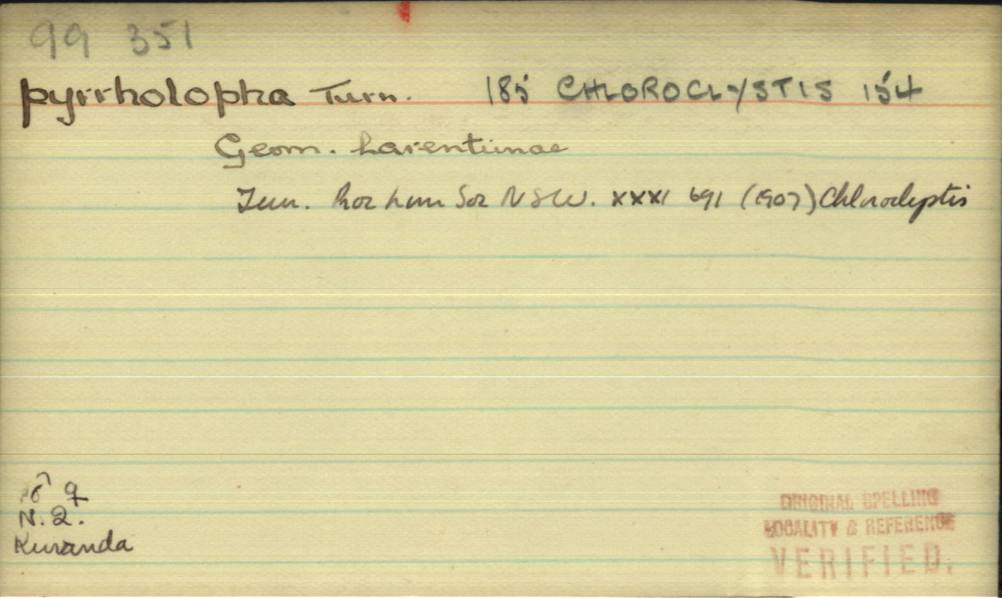 99 351
pyrrholopha Turn. 185 CHLOROCLYSTIS 154
Geom. Larentiinae
Turn. Proc Linn Soc NSW. XXXI 691 (1907) Chloroclystis
♂ ♀
N.Q.
Kuranda
ORIGINAL SPELLING
LOCALITY & REFERENCE
VERIFIED.